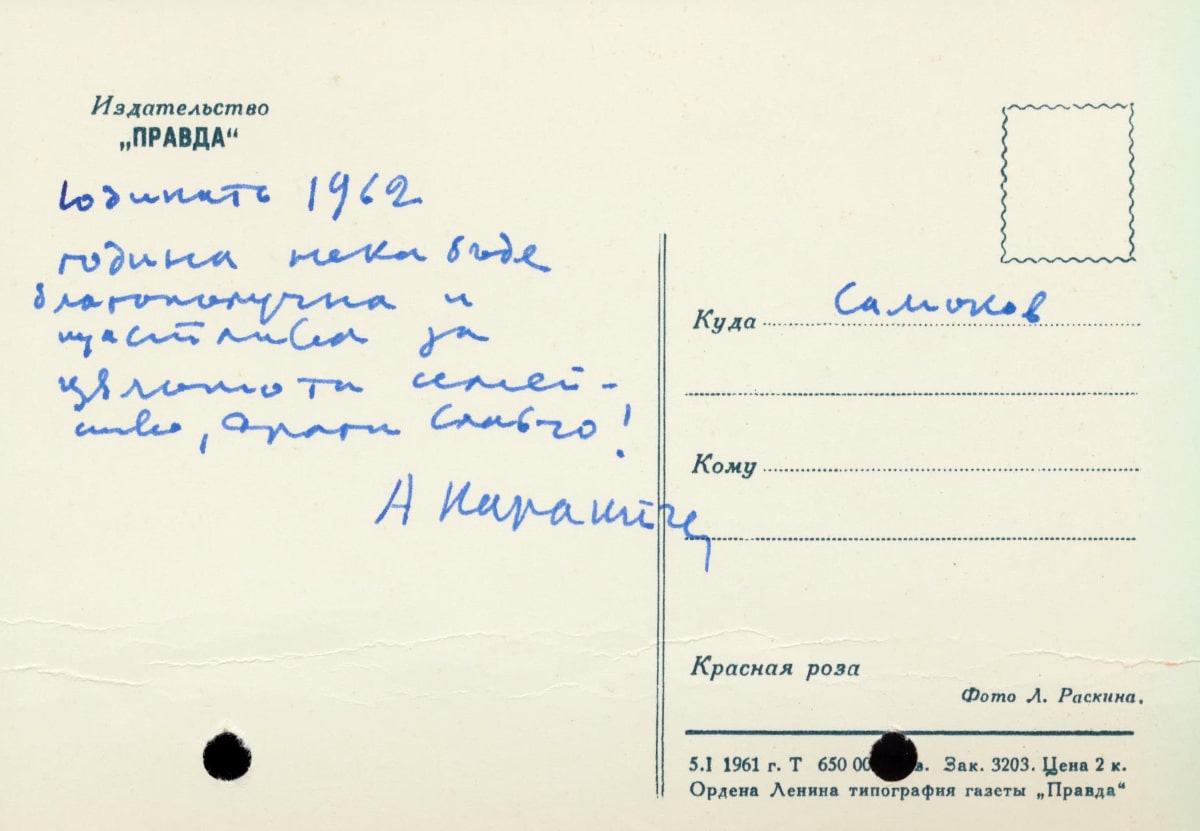 Издательство
„ПРАВДА“
1962
година нека бъде
благополучна и
щастлива за
цялото ти семей-
ство, драги Славчо!
А
Куда Самоков
Кому
Красная роза
Фото Л. Раскина.
5.I 1961 г. Т 650 00 в. Зак. 3203. Цена 2 к.
Ордена Ленина типография газеты „Правда“